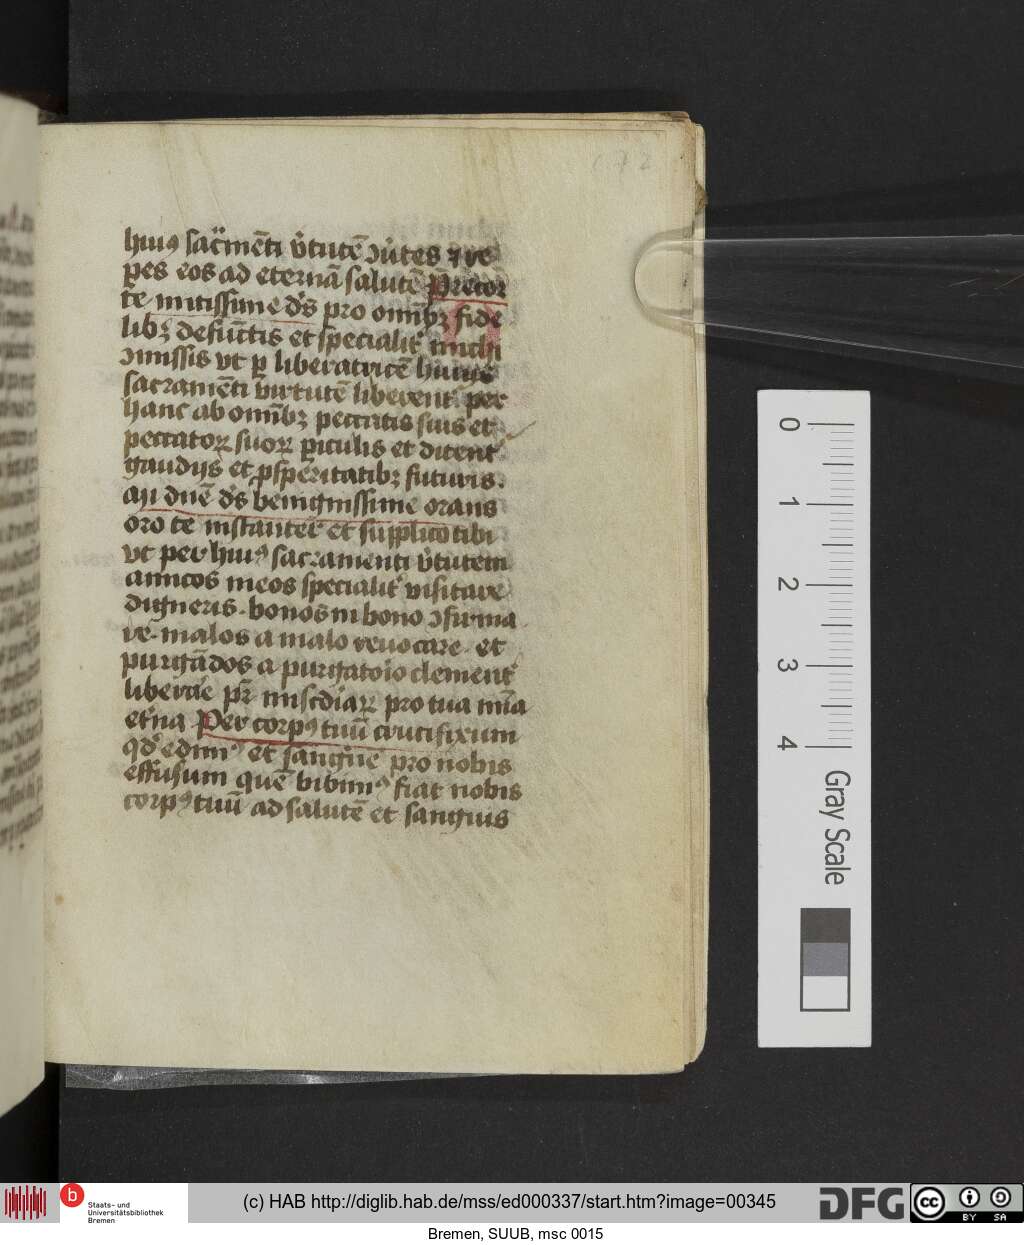 172
huiꝰ sac̃mẽti v̾tutẽ ꝯũtes ⁊ re
ꝑes eos ad eternã salutẽ Precor
te mitissime ds̃ pro om̃ibꝫ fide
libꝫ defũctis et specialit̾ michi
ꝯmissis vt ꝑ liberatricẽ huiꝰ
sacramẽti virtutẽ liberent̾ per
hanc ab om̃ibꝫ peccatis suis et
peccatoꝝ suoꝝ ꝑiculis et ditent̾
gaudijs et ꝓsperitatibꝫ futuris.
dñe ds̃ benignissime orans
oro te instanter et supplico tibi
vt per huiꝰ sacramenti v̾tutem
amicos meos specialit̾ visitare
digneris. bonos in bono ꝯfirma
re. malos a malo reuocare. et
purgãdos a purgatoꝛio clement̾
liberare pr̃ mi&#x73;cdiaꝝ pro tua mĩa
et̾na Per corpꝰ tuũ crucifixum
qd̾ edimꝰ et sanguĩe pro nobis
effusum quẽ bibimꝰ fiat nobis
corpꝰ tuũ ad salutẽ et sanguis
0
1
2
3
4
Gray Scale
b
Staats- und
Universitätsbibliothek
Bremen
(c) HAB http://diglib.hab.de/mss/ed000337/start.htm?image=00345
DFG
cc
BY SA
Bremen, SUUB, msc 0015